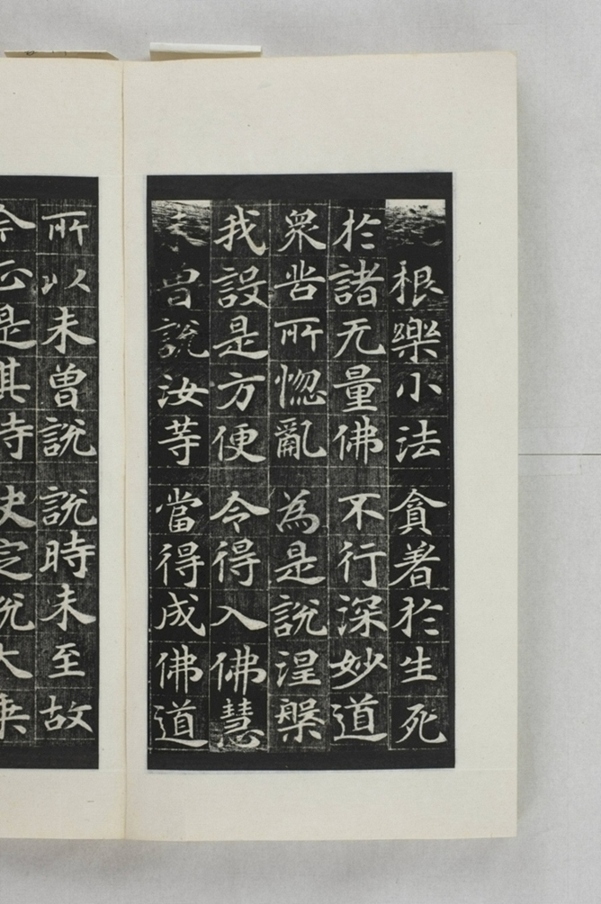 根樂小法 貪著於生死
於諸无量佛 不行深妙道
衆苦所惱亂 為是說涅槃
我設是方便 令得入佛慧
未曾說汝等 當得成佛道
所以未曾說 說時未至故
今正是其時 決定說大乘